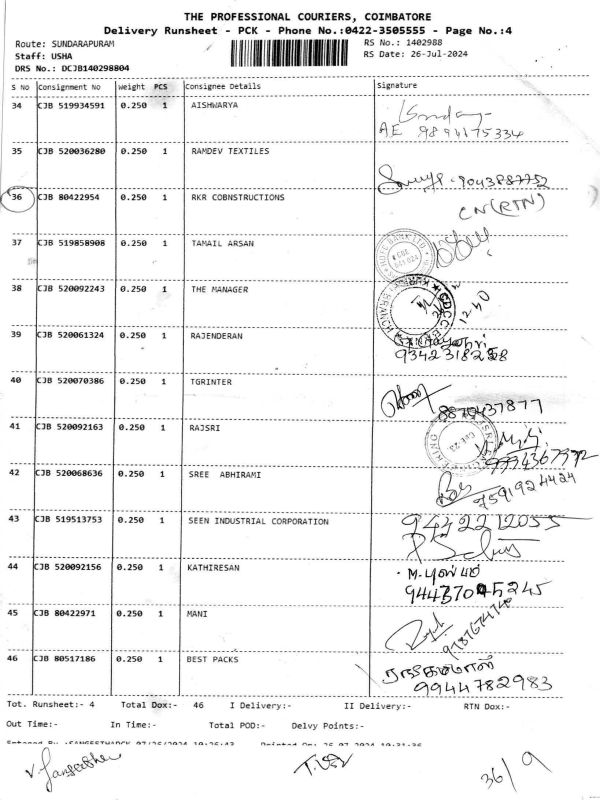 THE PROFESSIONAL COURIERS, COIMBATORE
Delivery Runsheet - PCK - Phone No.:0422-3505555 - Page No.:4
Route: SUNDARAPURAM RS No.: 1402988
Staff: USHA RS Date: 26-Jul-2024
DRS No.: DCJB140298804
S No Consignment No Weight PCS Consignee Details Signature
34 CJB 519934591 0.250 1 AISHWARYA
A.E 9894175334
35 CJB 520036280 0.250 1 RAMDEV TEXTILES
9043887752
36 CJB 80422954 0.250 1 RKR COBNSTRUCTIONS CN (RTN)
37 CJB 519858908 0.250 1 TAMAIL ARSAN
38 CJB 520092243 0.250 1 THE MANAGER
12.40
39 CJB 520061324 0.250 1 RAJENDERAN
40 CJB 520070386 0.250 1 TGRINTER
41 CJB 520092163 0.250 1 RAJSRI
42 CJB 520068636 0.250 1 SREE ABHIRAMI
9591924424
43 CJB 519513753 0.250 1 SEEN INDUSTRIAL CORPORATION 9442212055
44 CJB 520092156 0.250 1 KATHIRESAN
45 CJB 80422971 0.250 1 MANI
46 CJB 80517186 0.250 1 BEST PACKS
99447 82983
Tot. Runsheet:- 4 Total Dox:- 46 I Delivery:- II Delivery:- RTN Dox:-
Out Time:- In Time:- Total POD:- Delvy Points:-
36/9